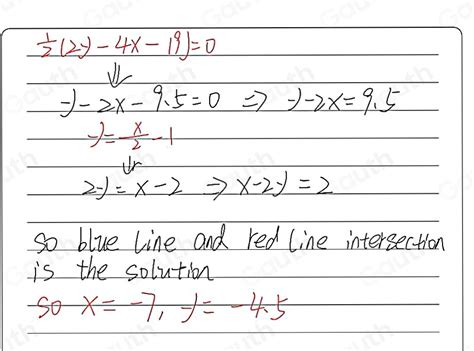 ½(2y-4x-19)=0
⇓
y-2x-9.5=0 ⇒ y-2x=9.5
y=x/2-1
⇓
2y=x-2 ⇒ x-2y=2
so blue line and red line intersection
is the solution
so x=-7, y=-4.5